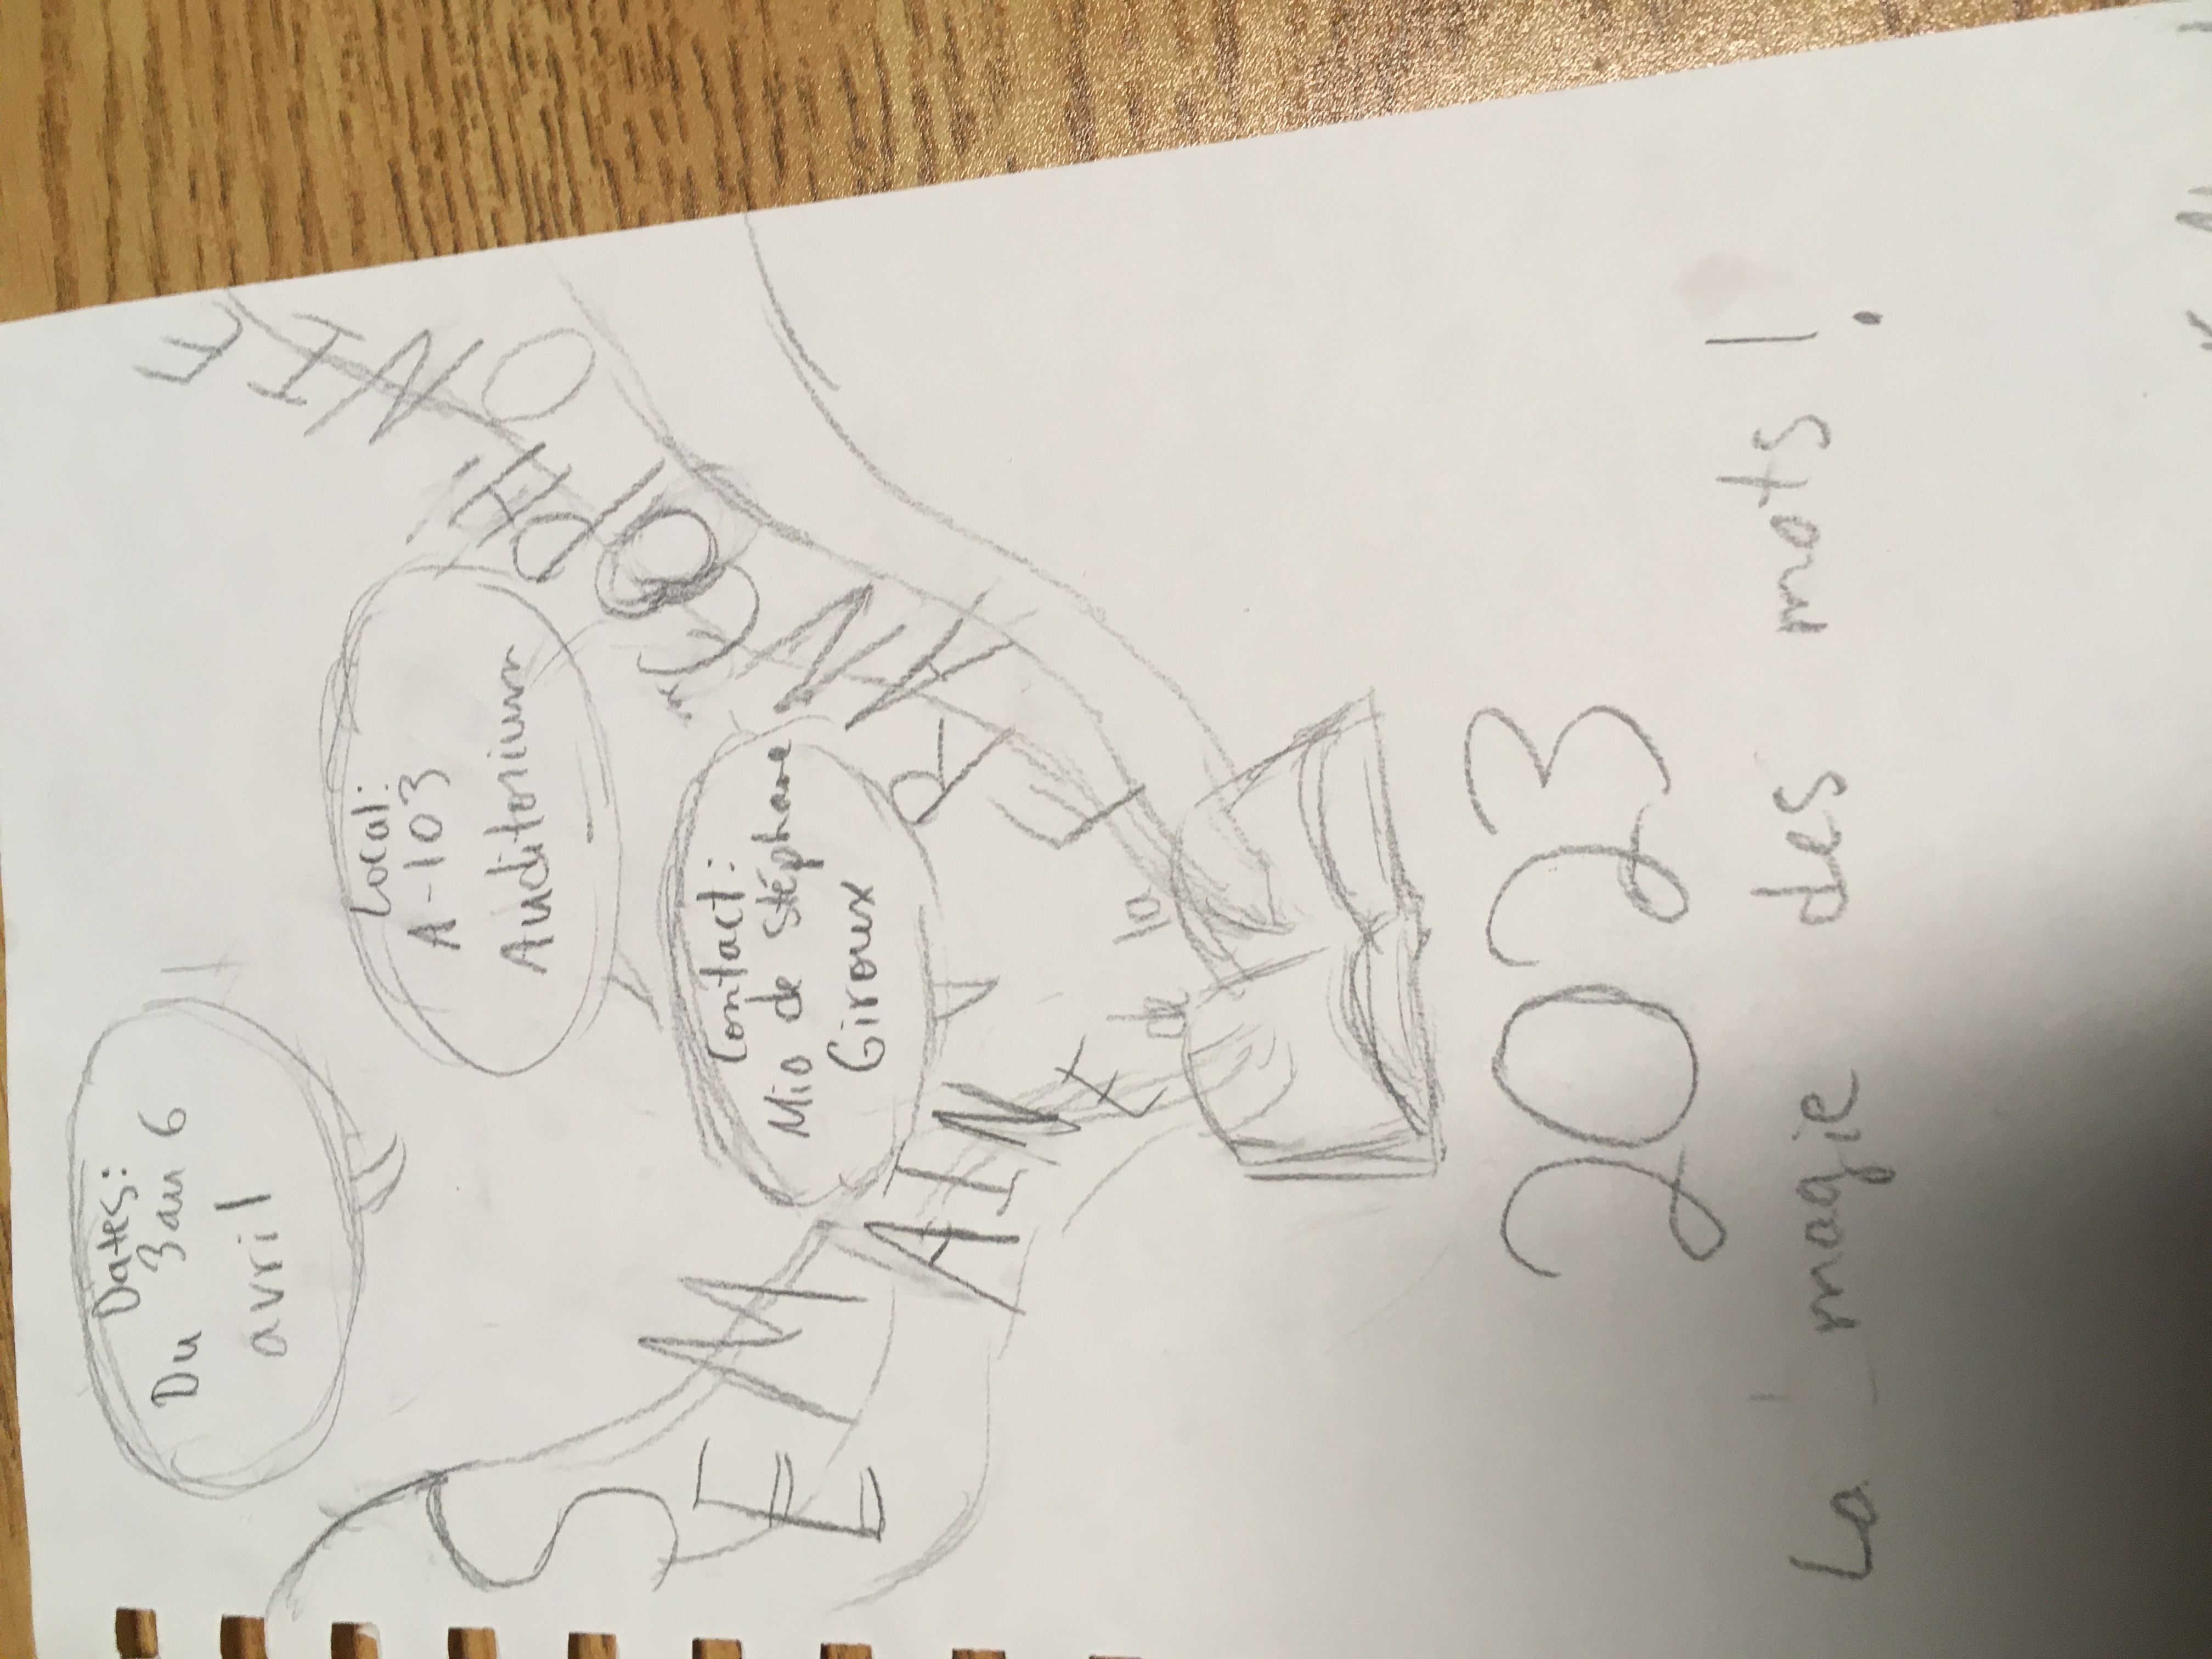 Dates:
Du 3 au 6
avril
Local:
A-103
Auditorium
Contact:
Mio de Stéphane
Giroux
SEMAINE de la FRANCOPHONIE
2023
La magie des mots !